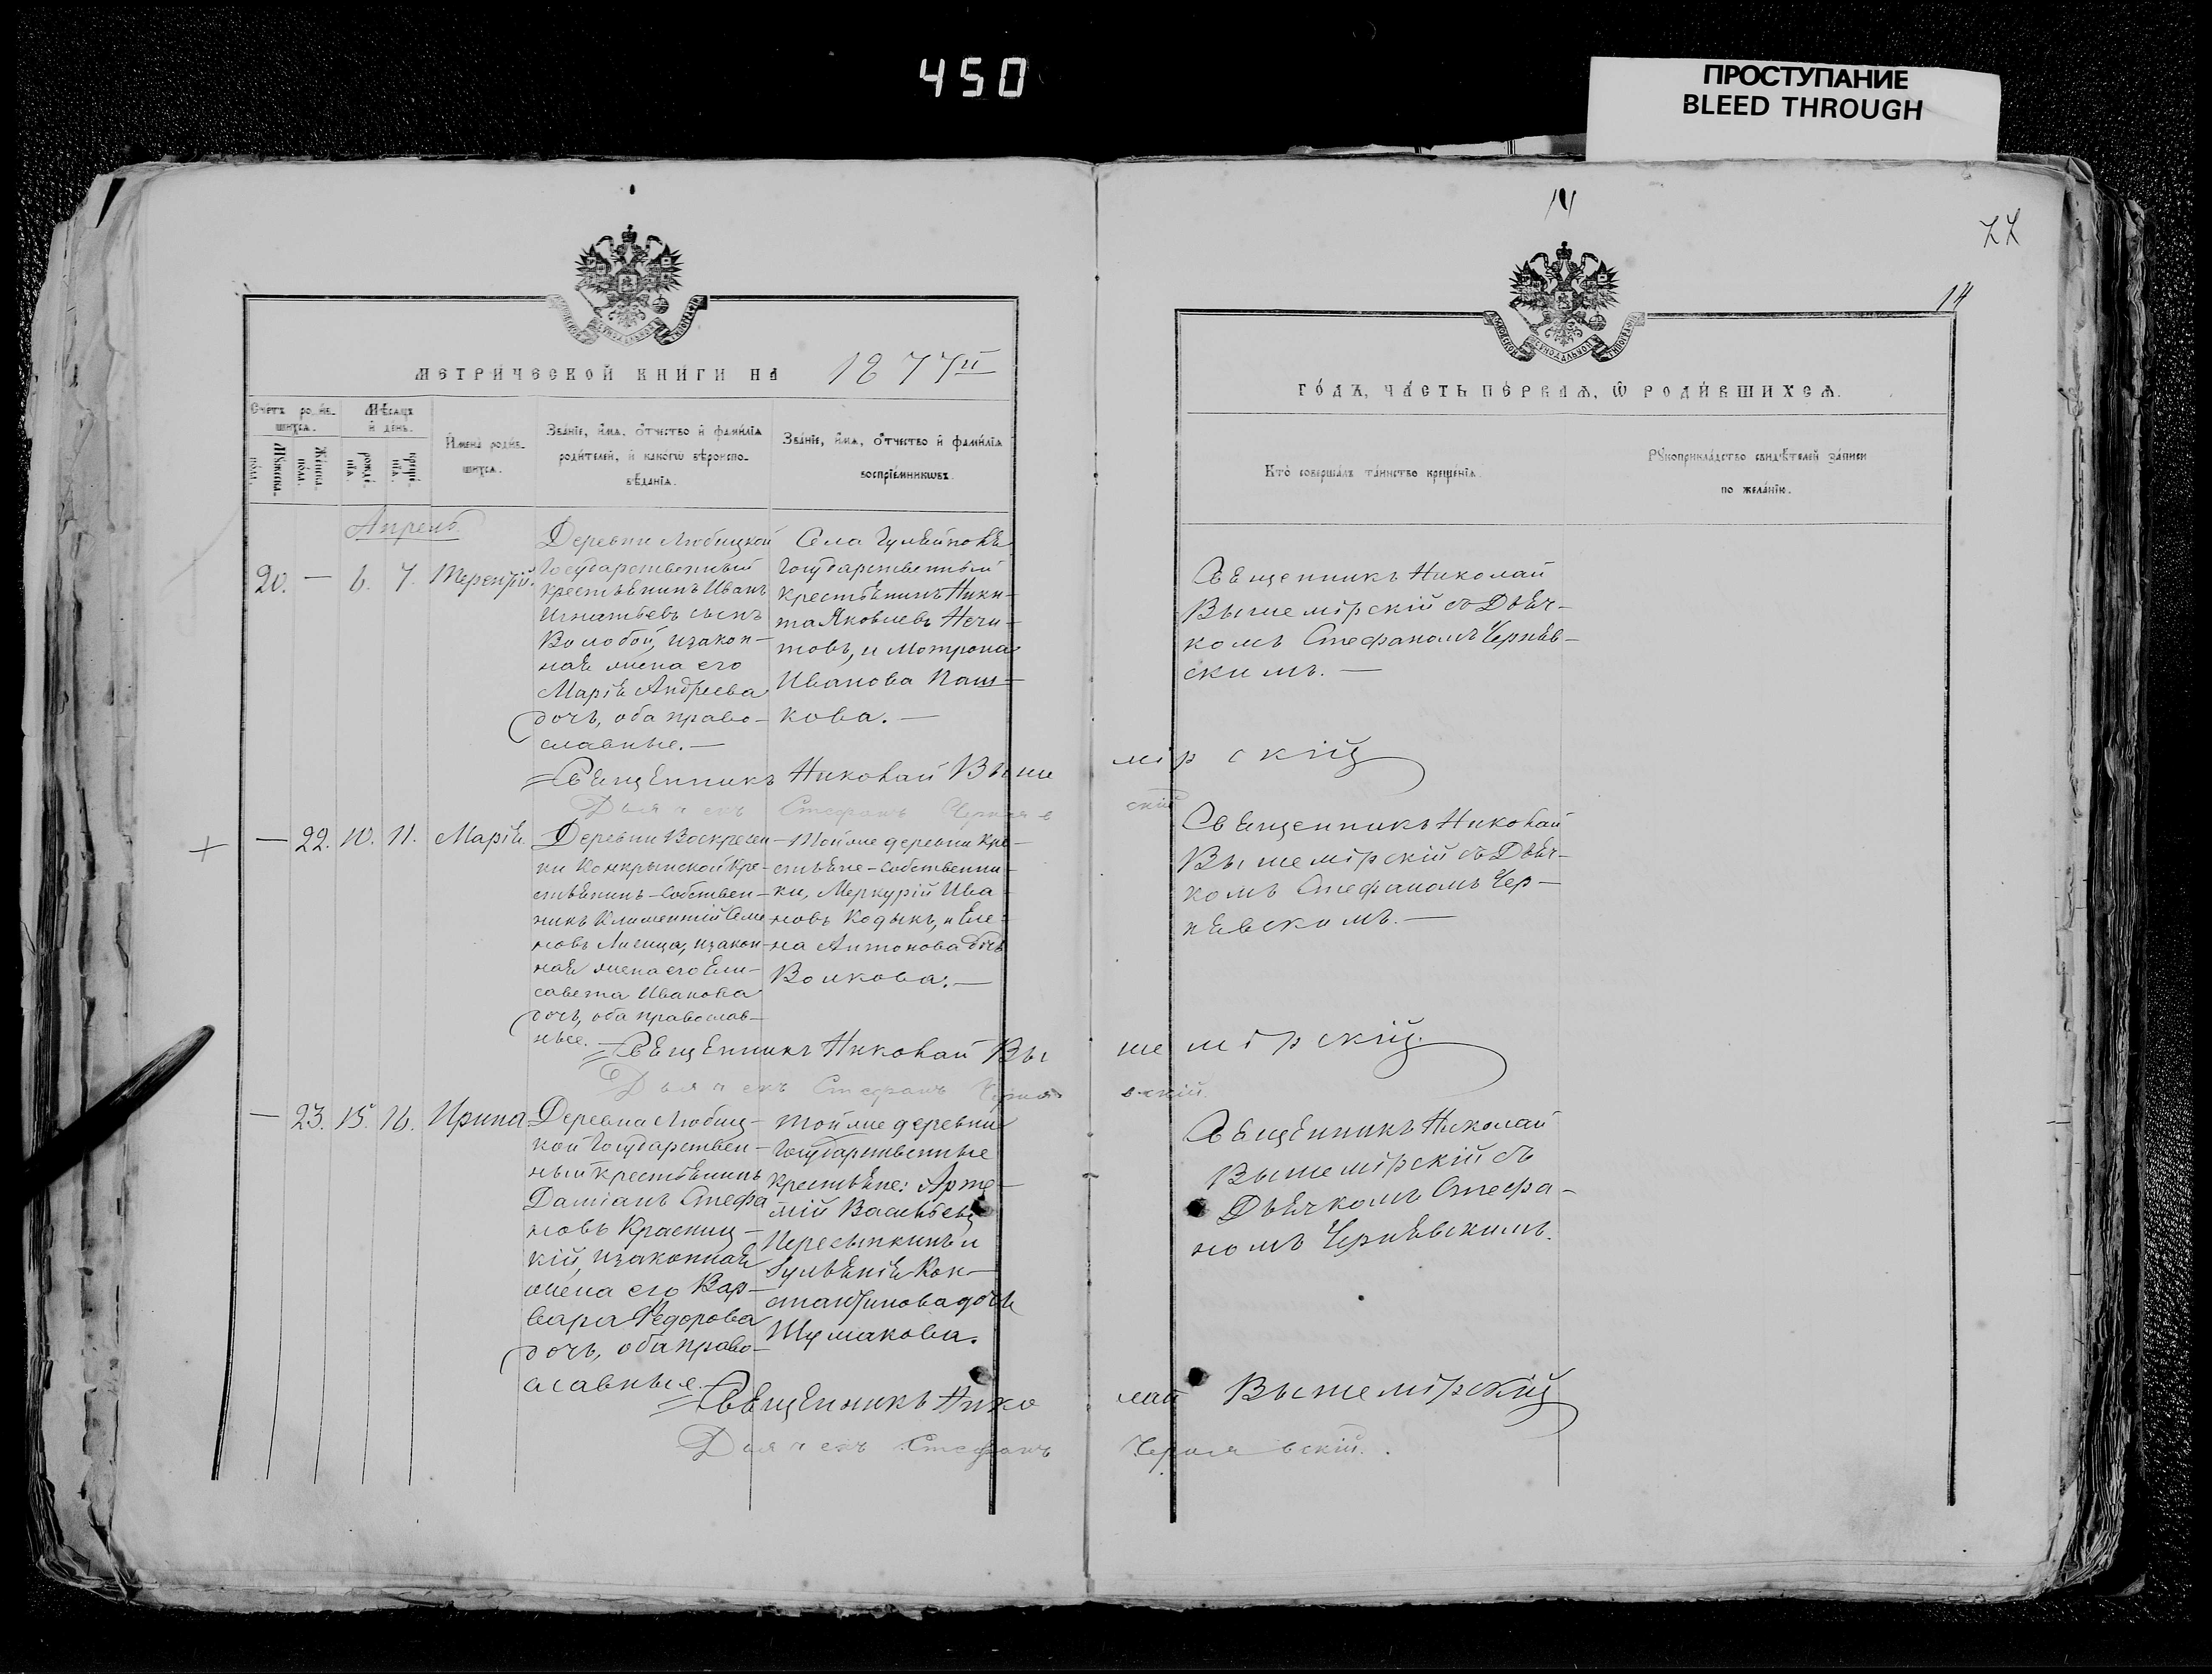 450
ПРОСТУПАНИЕ
BLEED THROUGH
22
14
МЕТРИЧЕСКОЙ КНИГИ НА 1877й
ГОДЪ, ЧАСТЬ ПЕРВАЯ, Ѿ РОДИВШИХСЯ.
Счетъ родив-
шихся.
Мужеска пола.
Женска пола.
Мѣсяцъ
и день.
рожде-
нія.
креще-
нія.
Имена родив-
шихся.
Званіе, имя, отчество и фамилія
родителей, и какогѡ вѣроиспо-
вѣданія.
Званіе, имя, отчество и фамилія
воспріемниковъ.
Кто совершалъ таинство крещенія.
Рукоприкладство свидѣтелей записи
по желанію.
Апрель
20. — 6. 7. Терентій.
Деревни Любицкой
Государственный
крестьянинъ Иванъ
Игнатьевъ сынъ
Волобой, и закон-
ная жена его
Марія Андреева
дочь, оба право-
славные. —
Села
Государственный
крестьянинъ Ники-
та Яковлевъ Нечи-
товъ, и Мотрона
Иванова Паш-
кова. —
Священникъ Николай
Вышемірскій съ Дьяч-
комъ Стефаномъ Черняв-
скимъ. —
Священникъ Николай Вышемірскій
Дьячекъ Стефанъ Чернявскій
— 22. 10. 11. Марія.
Деревни Воскресен-
ки Конкрынской кре-
стьянинъ-собствен-
никъ Климентій Семе-
новъ Лисица, и закон-
ная жена его Ели-
савета Иванова
дочь, оба православ-
ные.
Той же деревни кре-
стьяне-собственни-
ки, Меркурій Ива-
новъ Кодыкъ, и Еле-
на Антонова дочь
Волкова. —
Священникъ Николай
Вышемірскій съ Дьяч-
комъ Стефаномъ Чер-
нявскимъ. —
Священникъ Николай Вышемірскій.
Дьячекъ Стефанъ Чернявскій.
— 23. 15. 16. Ирина
Деревни Любиц-
кой Государствен-
ный крестьянинъ
Даміанъ Стефа
новъ Красниц-
кій, и законная
жена его Вар-
вара Федорова
дочь, оба право-
славные.
Той же деревни
Государственные
крестьяне: Арте-
мій Васильевъ
Пересыпкинъ и
Кон-
стантинова дочь
Шумакова.
Священникъ Николай
Вышемірскій съ
Дьячкомъ Стефа-
номъ Чернявскимъ.
Священникъ Николай Вышемірскій
Дьячекъ Стефанъ Чернявскій.